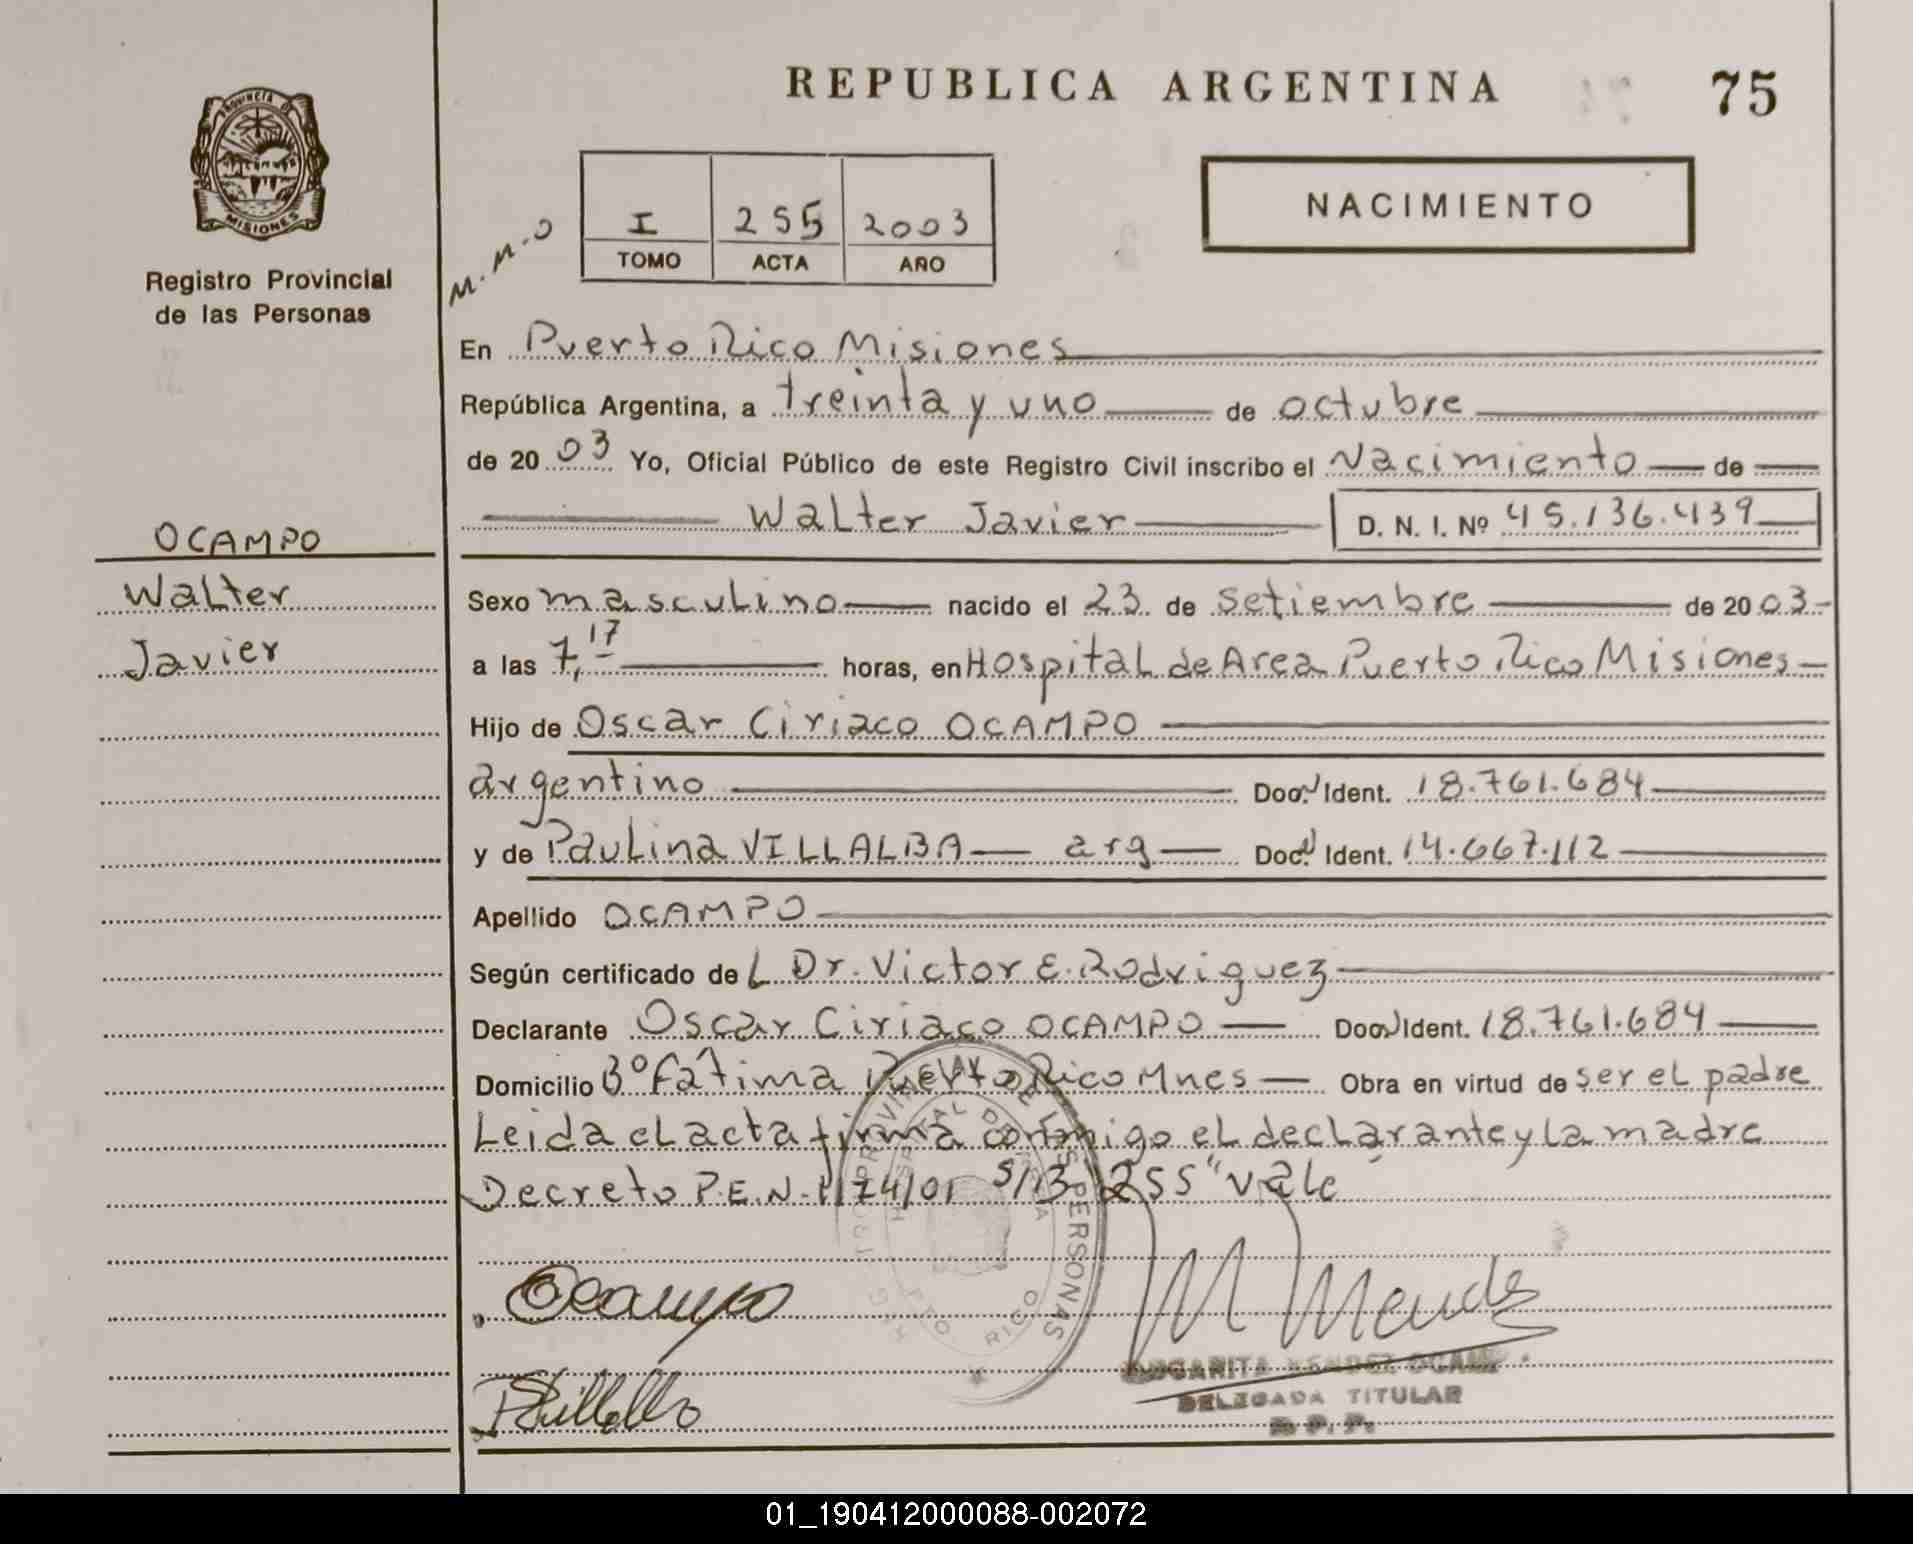 REPUBLICA ARGENTINA 75
PROVINCIA DE
MISIONES
Registro Provincial
de las Personas
M.M.O
I 255 2003
TOMO ACTA AÑO
NACIMIENTO
En Puerto Rico Misiones
República Argentina, a treinta y uno de octubre
de 2003 Yo, Oficial Público de este Registro Civil inscribo el Nacimiento de
Walter Javier D. N. I. Nº 45.136.439
OCAMPO
Walter
Javier
Sexo masculino nacido el 23 de setiembre de 2003
a las 7,17 horas, en Hospital de Area Puerto Rico Misiones
Hijo de Oscar Ciriaco OCAMPO
argentino Doc. Ident. 18.761.684
y de Paulina VILLALBA arg Doc. Ident. 14.667.112
Apellido OCAMPO
Según certificado del Dr. Victor E. Rodriguez
Declarante Oscar Ciriaco OCAMPO Doc. Ident. 18.761.684
Domicilio Bº Fátima Puerto Rico Mnes Obra en virtud de ser el padre
Leida el acta firma conmigo el declarante y la madre
Decreto P.E.N. 1174/01 S/B 255 "vale"
Ocampo
M Mendez
PERSONAS
HOSPITAL DE AREA
PTO. RICO
MARGARITA MENDEZ OCAMPO
DELEGADA TITULAR
R. P. P.
PVillalba
01_190412000088-002072